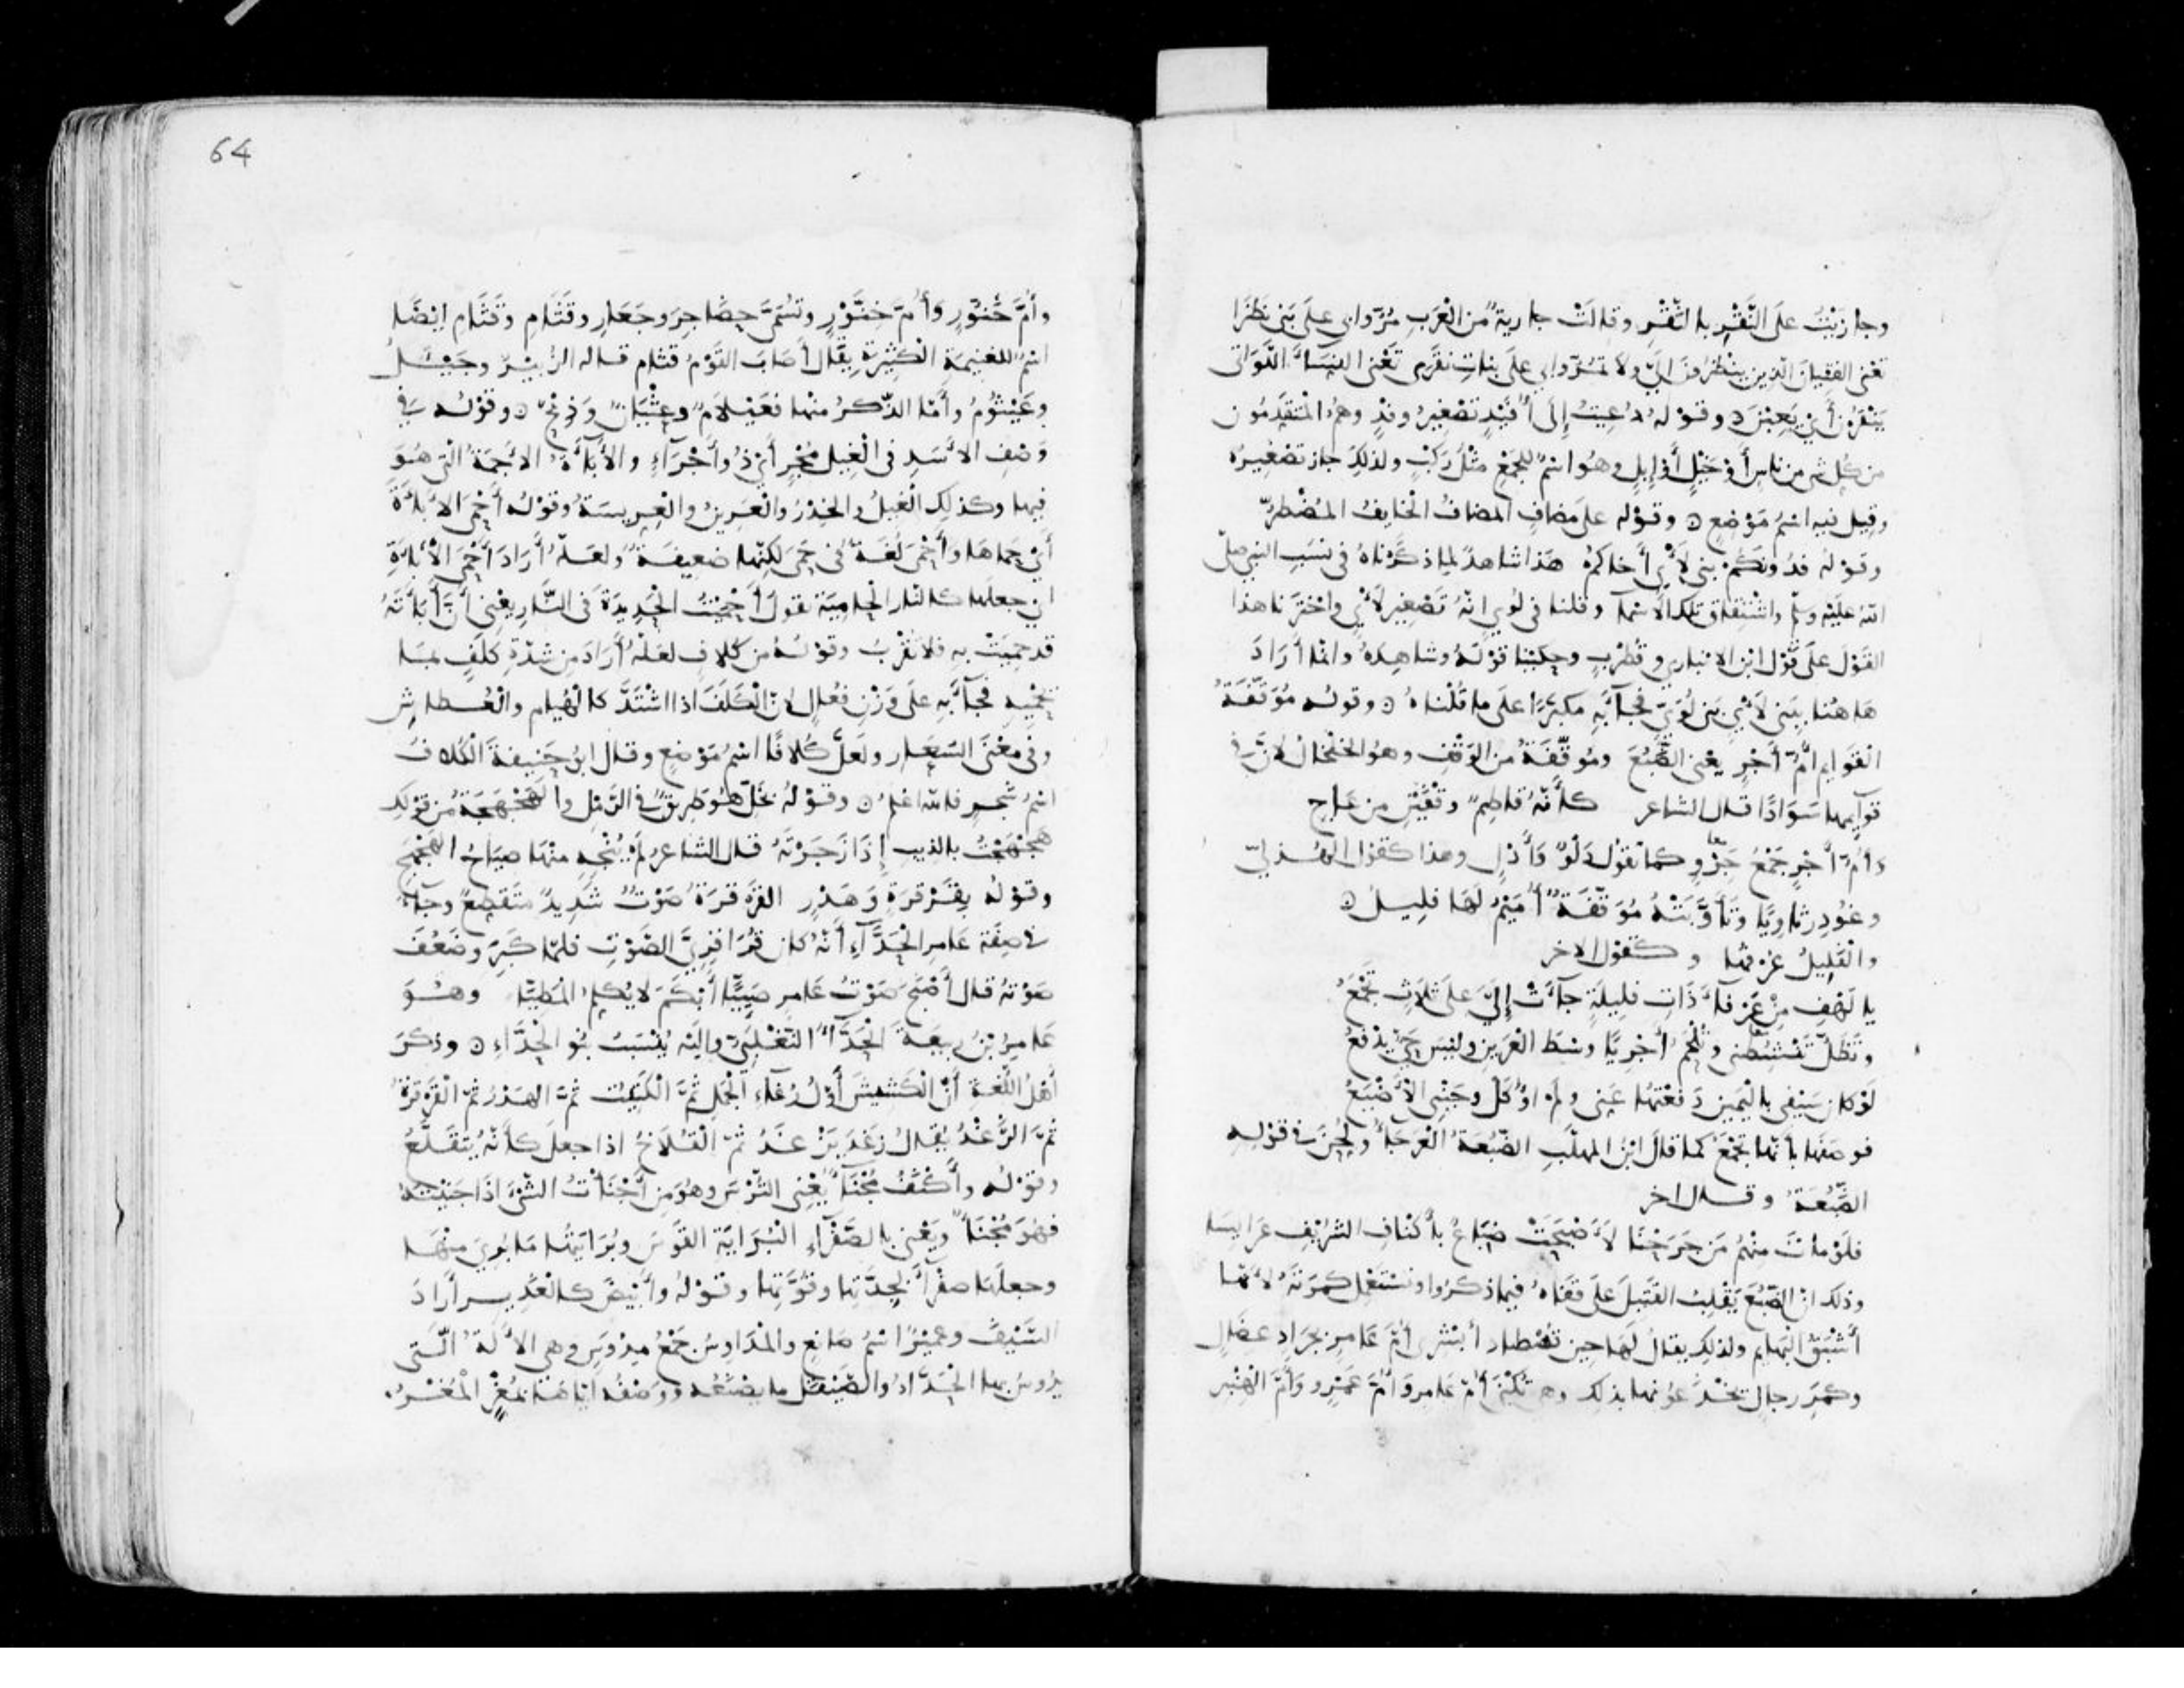 وجازيتُ على النَّقْرِ بالنَّقْرِ وقالتْ جاريةٌ من العَرَبِ مُرّوا بي على بَنِي نَظَرَا
تعْني الفتيانَ الّذين ينظُرونَ اليَّ ولا تمُرّوا بي على بناتِ نَقَرَى تَعْنى النِّسَاءَ اللّوَاتى
يَنْقرْنَ أيْ يَعِبْنَ ۞ وقوله دُعِيتُ إلى أُفَيْدٍ تصْغيرُ وفْدٍ وهُم المتقدِّمُون
من كُلّ شىٍ من ناسٍ أوْ خَيْلٍ أوْ إبِلٍ وهُوَ اسْمٌ للجَمْعِ مثْلُ رَكْبٍ ولذلِكَ جاز تصْغيرُه
وقيل فيه اسْمُ مَوْضعٍ ۞ وقوْله على مضافٍ المضافُ الخَايفُ المُضْطَرُّ
وقوْله فدُونَكُمْ بَني لأْيٍ أخاكمْ هذا شاهدٌ لماذكرْناهُ فى نسَبِ النبي صلّى
الله عليْه وسلّم واشْتِقاق تلك الاسْما وقلنا فى لُؤيٍ انّهُ تصْغير لأْيٍ واخْترنا هذا
القَوْلَ على قوْل ابْن الانبارى وقُطْربٍ وحكيْنا قوْلَهُ وشاهِدَهُ وانّما أرَادَ
هَاهُنا ببَني لأْيٍ بَني لُؤَيٍّ فجآءَ بهِ مكبَّرًا على ما قُلْناهُ ۞ وقولُه مُوَقَّفَةُ
القوَايم أُمُّ أَجْرٍ يعْنى الضَّبُعَ ومُوَقَّفَةٌ من الوَقْفِ وهو الخلْخالُ لأنّ فى
قوآيمها سَوَادًا قال الشاعر كأنّهُ قاطِمٌ وقْفَيْنِ مِن عَاجِ
وأُمّ أَجْرٍ جَمْعُ جَرْوٍ معًا كما تقولُ دَلْوٌ وَأَدْلٍ وهذا كقوْل الهُذلِيّ
وغُودِرَ ثاوِيًا وتَأوَّبَتْهُ مُوَقَّفَةٌ أُمَيْمُ لَهَا فلِيلُ ۞
والفَلِيلُ عُرْفُها وكقوْل الاخر
يا لَهْفِ مِنْ عَرْفاءَ ذَاتِ فليلَةٍ جاءَتْ إلَيَّ على ثلاثٍ تَخْمَعُ
وتَظلّ تَنْشِطُنى وتُلْحِمُ أَجْرِيًا وسْطَ العَرِينِ وليْسَ حَيٌّ يدْفَعُ
لَوْ كان سَيْفى باليَمينِ دَفعْتُها عَنى ولم أُوكَلْ وجَنْبى الأَضْبُعُ
فوصَفَها بأنّها تَخْمَعُ كما قال ابنُ المهلّبِ الضَّبُعَةُ العَرْجاءُ ولُحِّنَ فى قوْلِه
الضَّبُعَةُ وقال اخر
فلَوْ ماتَ منْهُمْ مَن جَرَحْنَا لأَصْبَحَتْ ضِبَاعٌ بأَكْنَافِ الشُّرَيْفِ عَرَايسَا
وذلك انّ الضَّبُعَ يَقْلِبُ القَتيلَ على قَفَاهُ فيما ذكرُوا وتسْتَعْمل كمَرَتَهُ لأنّها
أَشْبَقُ البَهايمِ ولذلِكَ يقالُ لَهَا حِينَ تُصْطاد أبْشرى أُمَّ عَامرٍ بجَرادٍ عضَالٍ
وكمَرِ رجالٍ تَخْدَعُونها بذلك وهى تُكْنَى أمّ عَامرٍ وَأُمّ عَمْرٍو وَأُمّ الهِنْبِر
64
وأُمّ خَنُّورٍ وَأُمّ خِنَّوْرٍ وتسمّى حضَاجِرَ وجَعَارِ وقَثَامِ وقَثَام ايضًا
اسْمٌ للغنيمَةِ الكثيرَةِ يقَالُ أَصَابَ القوْمُ قثَام قاله الزُّبَيْرُ وجَيْئَلُ
وعَيْثُوْمُ وأمّا الذّكرُ منها فعَيْلَامٌ وعِثْيَانٌ وَذِيخٌ ۞ وقوْله فى
وَصْفِ الأسَدِ فى الغِيلِ مُجْرٍ أيْ ذُو أَجْرَاءٍ والأَبَاءَةُ الأَجَمَةُ التى هُوَ
فيها وكذلِك الغيلُ والخِدْرُ والعَرينُ والعِرِّيسَةُ وقوْلُه أَحْمَى الأَبَاءَةَ
أيْ حَماهَا وَأَحْمَى لُغَةٌ فى حَمَى لكنّها ضعيفةٌ ولعلّهُ أرَادَ أَحْمَى الأَبَاءَةَ
اى جعلَها كالنار الحاميَةِ تقولُ أَحْمَيْتُ الحَدِيدَةَ فى النّارِ يعْنى أنّ أَبَاءَتَهُ
قد حَمِيَتْ بهِ فلا تُقْرَبُ وقوْلُهُ من كُلافٍ لعَلّهُ أرَادَ مِن شدّةِ كلَفٍ بما
يَحْمِيهِ فجآءَ بهِ على وَزْنِ فُعالٍ لأنّ الكَلَفَ اذا اشْتَدَّ كالهُيَامِ والعُطاشِ
وفى معْنَى السُّعَارِ ولعَلَّ كُلافًا اسْمُ مَوْضعٍ وقال ابو حَنيفَةَ الكُلافُ
اسْمُ شجَرٍ فاللهُ اعْلَمُ ۞ وقوْلُهُ بِخَلٍّ هُوَ طَريقٌ فى الرَّمْلِ والهَجْهَجَةُ من قَوْلِكَ
هَجْهَجْتُ بالذيب إذَا زَجَرْتَهُ قال الشاعر لم يُنْجِهِ منها صيَاحُ الهَجْهَجِ
وقوْلُهُ بقَرْقرَةٍ وَهَدْرٍ القرْقرَةُ صَوْتٌ شَدِيدٌ متَقَطِّعٌ وجآءَ
فى صِفَة عَامر الحَدَّآءِ أنّهُ كان قُرَاقِرِيَّ الصّوْتِ فلمّا كَبِرَ وضَعُفَ
صَوْتهُ قال أَصْبَحَ صَوْتُ عَامرٍ صَئِيًّا أَبْكَمَ لا يُكلِمُ المَطِيَّا وهُوَ
عَامرُ بنُ رَبيعَةَ الحَدَّاءُ التغْلَبِيُّ واليْه يُنْسَبُ بنُو الحَدَّاءِ ۞ وذكرَ
أهْلُ اللّغَة أنّ الكَشيشَ أوّلُ رُغآءِ الجَمَلِ ثمّ الكَتِيتُ ثمّ الهَدْرُ ثمّ القَرْقرَةُ
ثمّ الزَّغْدُ يُقالُ زغَدَ يزْغَدُ ثمّ القُلَاخُ اذا جعلَ كأنّهُ يَتقَلَّعُ
وقوْلُه وأَكْنَفُ مُجْنَأٌ يعْنى التُّرْسَ وهُوَ مِن أَجْنَأْتُ الشّىءَ اذَا حَنَيْتَهُ
فهُوَ مُجْنَأٌ ويَعْنى بالصَّفْرَآءِ البُرَايَةَ القَوْسَ وبُرَايَتُها مَا بُرِىَ منْهَا
وجعلَها صفْراءَ لِجِدَّتِها وقُوَّتِها وقوْلُهُ وأَبْيَضَ كالغَدِيرِ أرَادَ
السَّيْفَ وعُمَيْرٌ اسْمُ صَانعٍ والمَدَاوِسُ جَمْعُ مِدْوَسٍ وهى الآلَةُ الّتى
يدُوسُ بها الحَدَّادُ والصَّيْقَلُ ما يصْنَعُهُ ووَصْفُه ايّاهَا